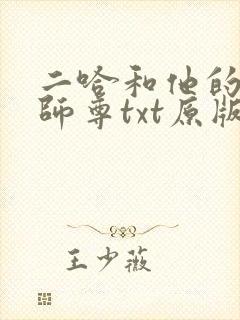 二哈和他的
師尊txt原版
王少薇